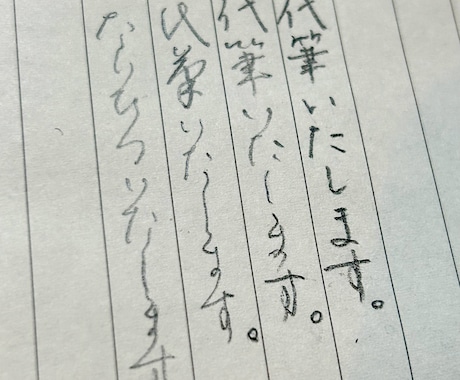 代筆いたします。
代筆いたします。
代筆いたします。
だいひついたします